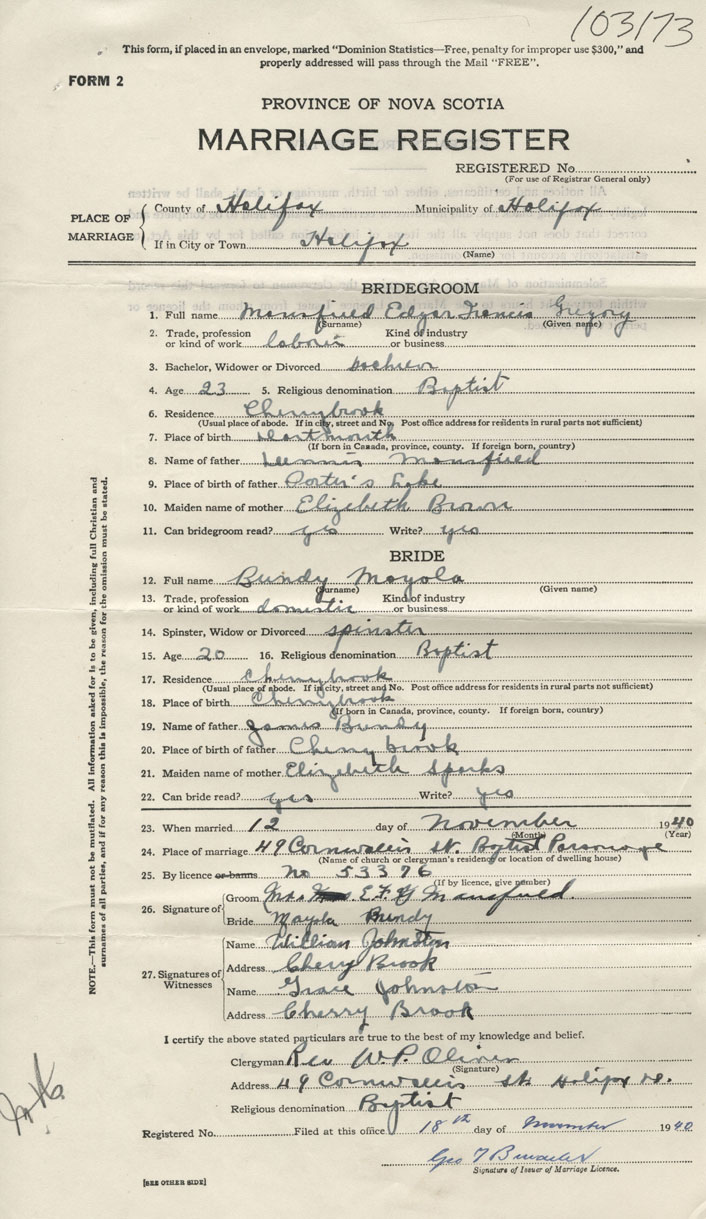 103173
This form, if placed in an envelope, marked "Dominion Statistics—Free, penalty for improper use $300," and
properly addressed will pass through the Mail "FREE".
FORM 2
PROVINCE OF NOVA SCOTIA
MARRIAGE REGISTER
REGISTERED No.
(For use of Registrar General only)
PLACE OF MARRIAGE
County of Halifax Municipality of Halifax
If in City or Town Halifax
(Name)
BRIDEGROOM
1. Full name Mansfield Edgar Francis Gregory
(Surname) (Given name)
2. Trade, profession or kind of work laborer Kind of industry or business
3. Bachelor, Widower or Divorced bachelor
4. Age 23 5. Religious denomination Baptist
6. Residence Cherrybrook
(Usual place of abode. If in city, street and No. Post office address for residents in rural parts not sufficient)
7. Place of birth Dartmouth
(If born in Canada, province, county. If foreign born, country)
8. Name of father Dennis Mansfield
9. Place of birth of father Porter's Lake
10. Maiden name of mother Elizabeth Brown
11. Can bridegroom read? yes Write? yes
BRIDE
12. Full name Bundy Mayola
(Surname) (Given name)
13. Trade, profession or kind of work domestic Kind of industry or business
14. Spinster, Widow or Divorced spinster
15. Age 20 16. Religious denomination Baptist
17. Residence Cherrybrook
(Usual place of abode. If in city, street and No. Post office address for residents in rural parts not sufficient)
18. Place of birth Cherrybrook
(If born in Canada, province, county. If foreign born, country)
19. Name of father James Bundy
20. Place of birth of father Cherry brook
21. Maiden name of mother Elizabeth Sparks
22. Can bride read? yes Write? yes
23. When married 12 day of November 1940
(Month) (Year)
24. Place of marriage 49 Cornwallis st. Baptist Parsonage
(Name of church or clergyman's residence or location of dwelling house)
25. By licence or banns No 53376
(If by licence, give number)
26. Signature of
Groom E. F. G Mansfield.
Bride Mayola Bundy
27. Signatures of Witnesses
Name William Johnston
Address Chery Brook
Name Grace Johnston
Address Cherry Brook
I certify the above stated particulars are true to the best of my knowledge and belief.
Clergyman Rev W.P. Oliver
(Signature)
Address 49 Cornwallis st. Halifax
Religious denomination Baptist
Registered No. Filed at this office 18th day of November 1940
Geo T
Signature of Issuer of Marriage Licence.
[SEE OTHER SIDE]
NOTE.—This form must not be mutilated. All information asked for is to be given, including full Christian and
surnames of all parties, and if for any reason this is impossible, the reason for the omission must be stated.